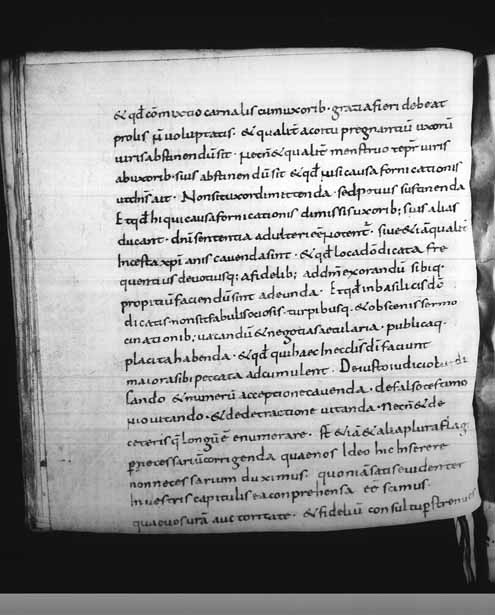 & qđ cōmixtio carnalis cum uxorib· gratia fieri debeat
prolis ñ uoluptatis· & qualit̄ a coitu pregnantiū uxorū
uiris abstinendū sit· necn̄ & qualit̄ menstruo tēpr̄ uiris
ab uxorib· suis abstinendū sit & qđ nisi causa fornicationis
ut dn̄s ait· Non sit uxor dimittenda· sed potius sustinenda
Et qđ hi qui causa fornicationis dimissis uxorib; suis alias
ducant· dn̄i sententia adulteri eē notent̄· siue & iā qualit̄
Incesta xp̄ianis cauenda sint· & qđ loca dō dicata fre
quentius deuotiusq; a fidelib; ad dn̄m exorandū sibiq·
propitiū faciendū sint adeunda· Et qđ in basilicis dō
dicatis non sit fabulis otiosis turpibusq; & obscenis sermo
cinationib; uacandū & negotia saecularia· publicaq·
placita habenda· & qđ qui haec In ecclis dī faciunt
maiora sibi peccata adcumulent· De iusto iudicio iudi
cando & munerū acceptione cauenda· de falso testimo
nio uitando· & de detractione uitanda· Necn̄ & de
ceteris q̄ longū ē enumerare· St̄ & iā & alia plura flag
p̄ necessariū corrigenda quae nos Ideo hic Inserere
non necessarium duximus· quoniā satis euidenter
In uestris capitulis ea conprehensa eē scimus·
quae uos urā auctoritate· & fideliū consultu p̄strenuos